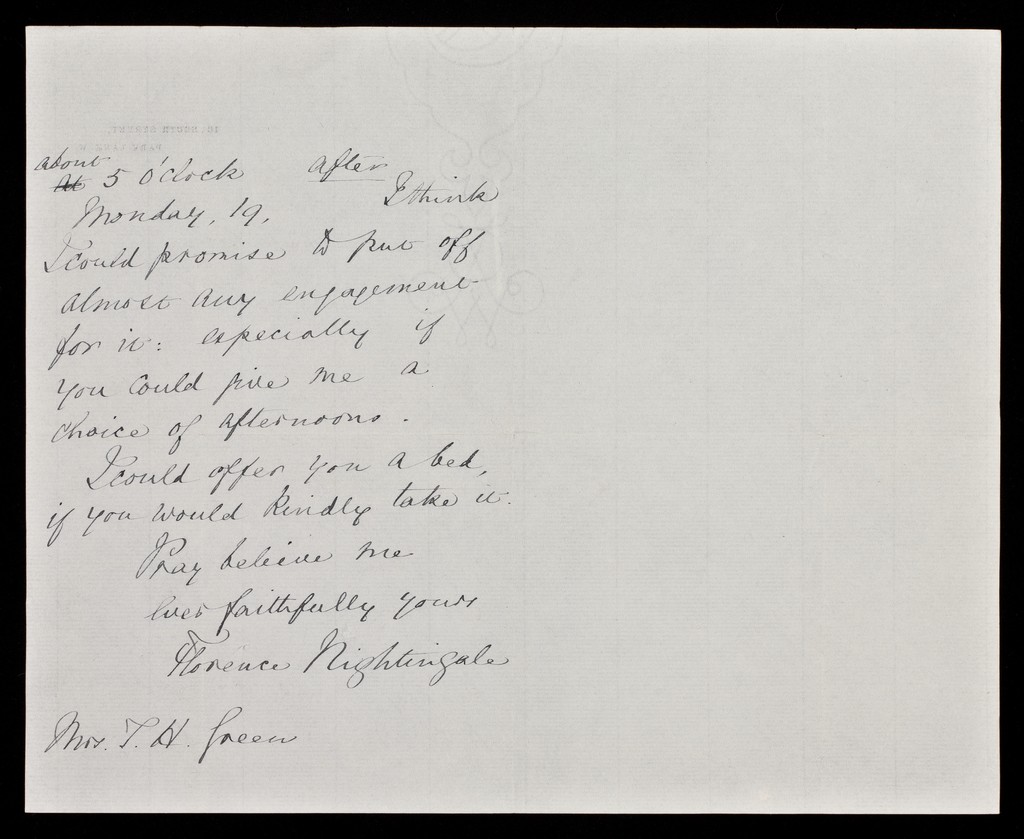 about
At 5 o'clock after
Monday, 19, I think
I could promise to put off
almost any engagement
for it: especially if
you could give me a
choice of afternoons.
I could offer you a bed,
if you would kindly take it.
Pray believe me
ever faithfully yours
Florence Nightingale
Mrs. T. H. Green